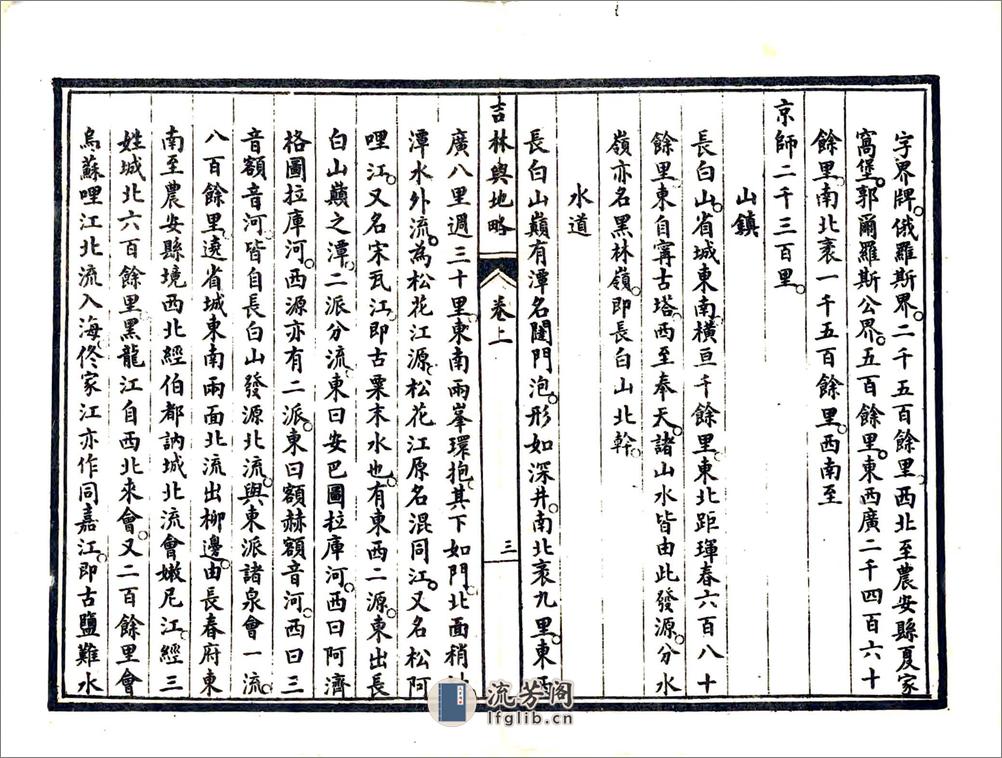 字界牌。俄羅斯界。二千五百餘里。西北至農安縣夏家
窩堡。郭爾羅斯公界。五百餘里。東西廣二千四百六十
餘里。南北袤一千五百餘里。西南至
京師二千三百里。
山鎮
長白山。省城東南。橫亘千餘里。東北距琿春六百八十
餘里。東自甯古塔。西至奉天。諸山水皆由此發源。分水
嶺亦名黑林嶺。即長白山北幹。
水道
長白山巔有潭名闥門泡。形如深井。南北袤九里。東西
吉林輿地略
卷上
三
廣八里。週三十里。東南兩峯環抱。其下如門。北面稍
潭水外流。為松花江源。松花江原名混同江。又名松阿
哩江。又名宋瓦江。即古粟末水也。有東西二源。東出長
白山巔之潭。二派分流。東曰安巴圖拉庫河。西曰阿濟
格圖拉庫河。西源亦有二派。東曰額赫額音河。西曰三
音額音河。皆自長白山發源北流。與東派諸泉會一流。
八百餘里。遶省城東南兩面北流出柳邊。由長春府東
南至農安縣境西北經伯都訥城北流會嫩尼江。經三
姓城北六百餘里黑龍江自西北來會。又二百餘里會
烏蘇哩江北流入海。佟家江亦作同嘉江。即古鹽難水
流芳阁
lfglib.cn